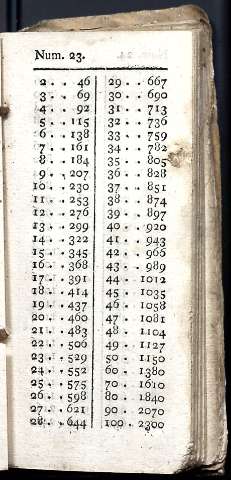 Num. 23.
2 . . 46 29 . . 667
3 . . 69 30 . . 690
4 . . 92 31 . . 713
5 . . 115 32 . . 736
6 . . 138 33 . . 759
7 . . 161 34 . . 782
8 . . 184 35 . . 805
9 . . 207 36 . . 828
10 . . 230 37 . . 851
11 . . 253 38 . . 874
12 . . 276 39 . . 897
13 . . 299 40 . . 920
14 . . 322 41 . . 943
15 . . 345 42 . . 966
16 . . 368 43 . . 989
17 . . 391 44 . . 1012
18 . . 414 45 . . 1035
19 . . 437 46 . . 1058
20 . . 460 47 . . 1081
21 . . 483 48 . . 1104
22 . . 506 49 . . 1127
23 . . 529 50 . . 1150
24 . . 552 60 . . 1380
25 . . 575 70 . . 1610
26 . . 598 80 . . 1840
27 . . 621 90 . . 2070
28 . . 644 100 . . 2300